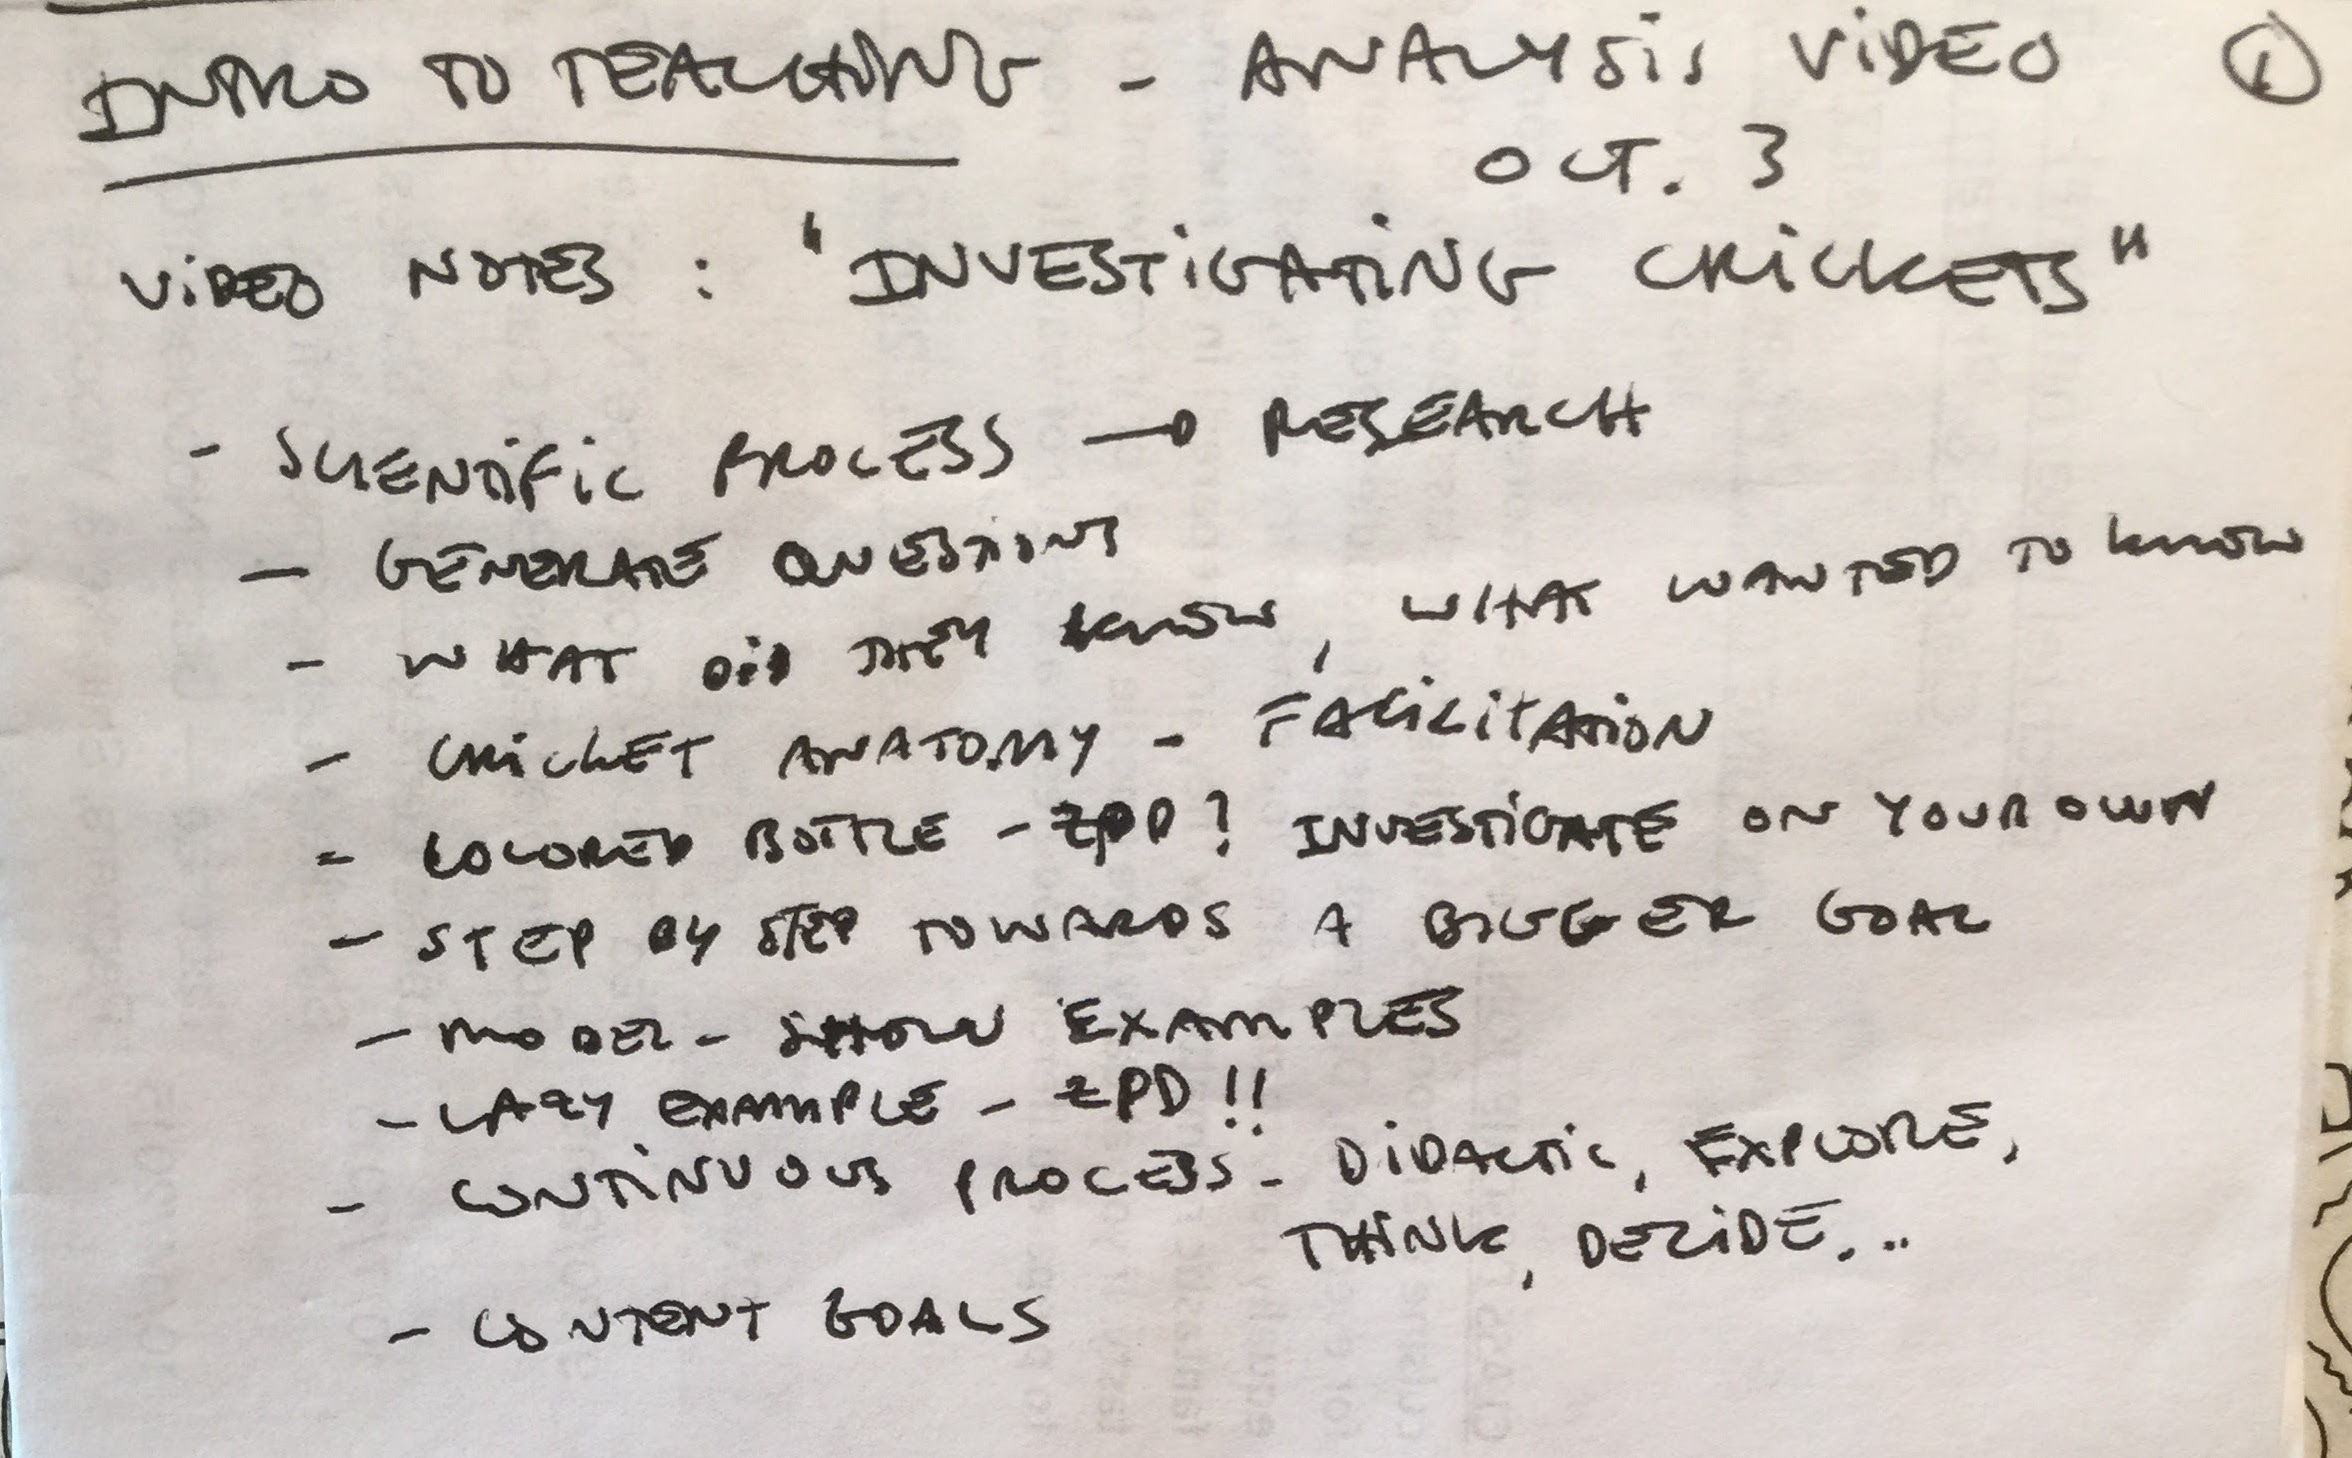 INTRO TO TEACHING - ANALYSIS VIDEO ①
OCT. 3
VIDEO NOTES : "INVESTIGATING CRICKETS"
- SCIENTIFIC PROCESS → RESEARCH
- GENERATE QUESTIONS
- WHAT DID THEY KNOW, WHAT WANTED TO KNOW
- CRICKET ANATOMY - FACILITATION
- COLORED BOTTLE - ZPD? INVESTIGATE ON YOUR OWN
- STEP BY STEP TOWARDS A BIGGER GOAL
- MODEL - SHOW EXAMPLES
- LAZY EXAMPLE - ZPD!!
- CONTINUOUS PROCESS - DIDACTIC, EXPLORE,
THINK, DECIDE...
- CONTENT GOALS